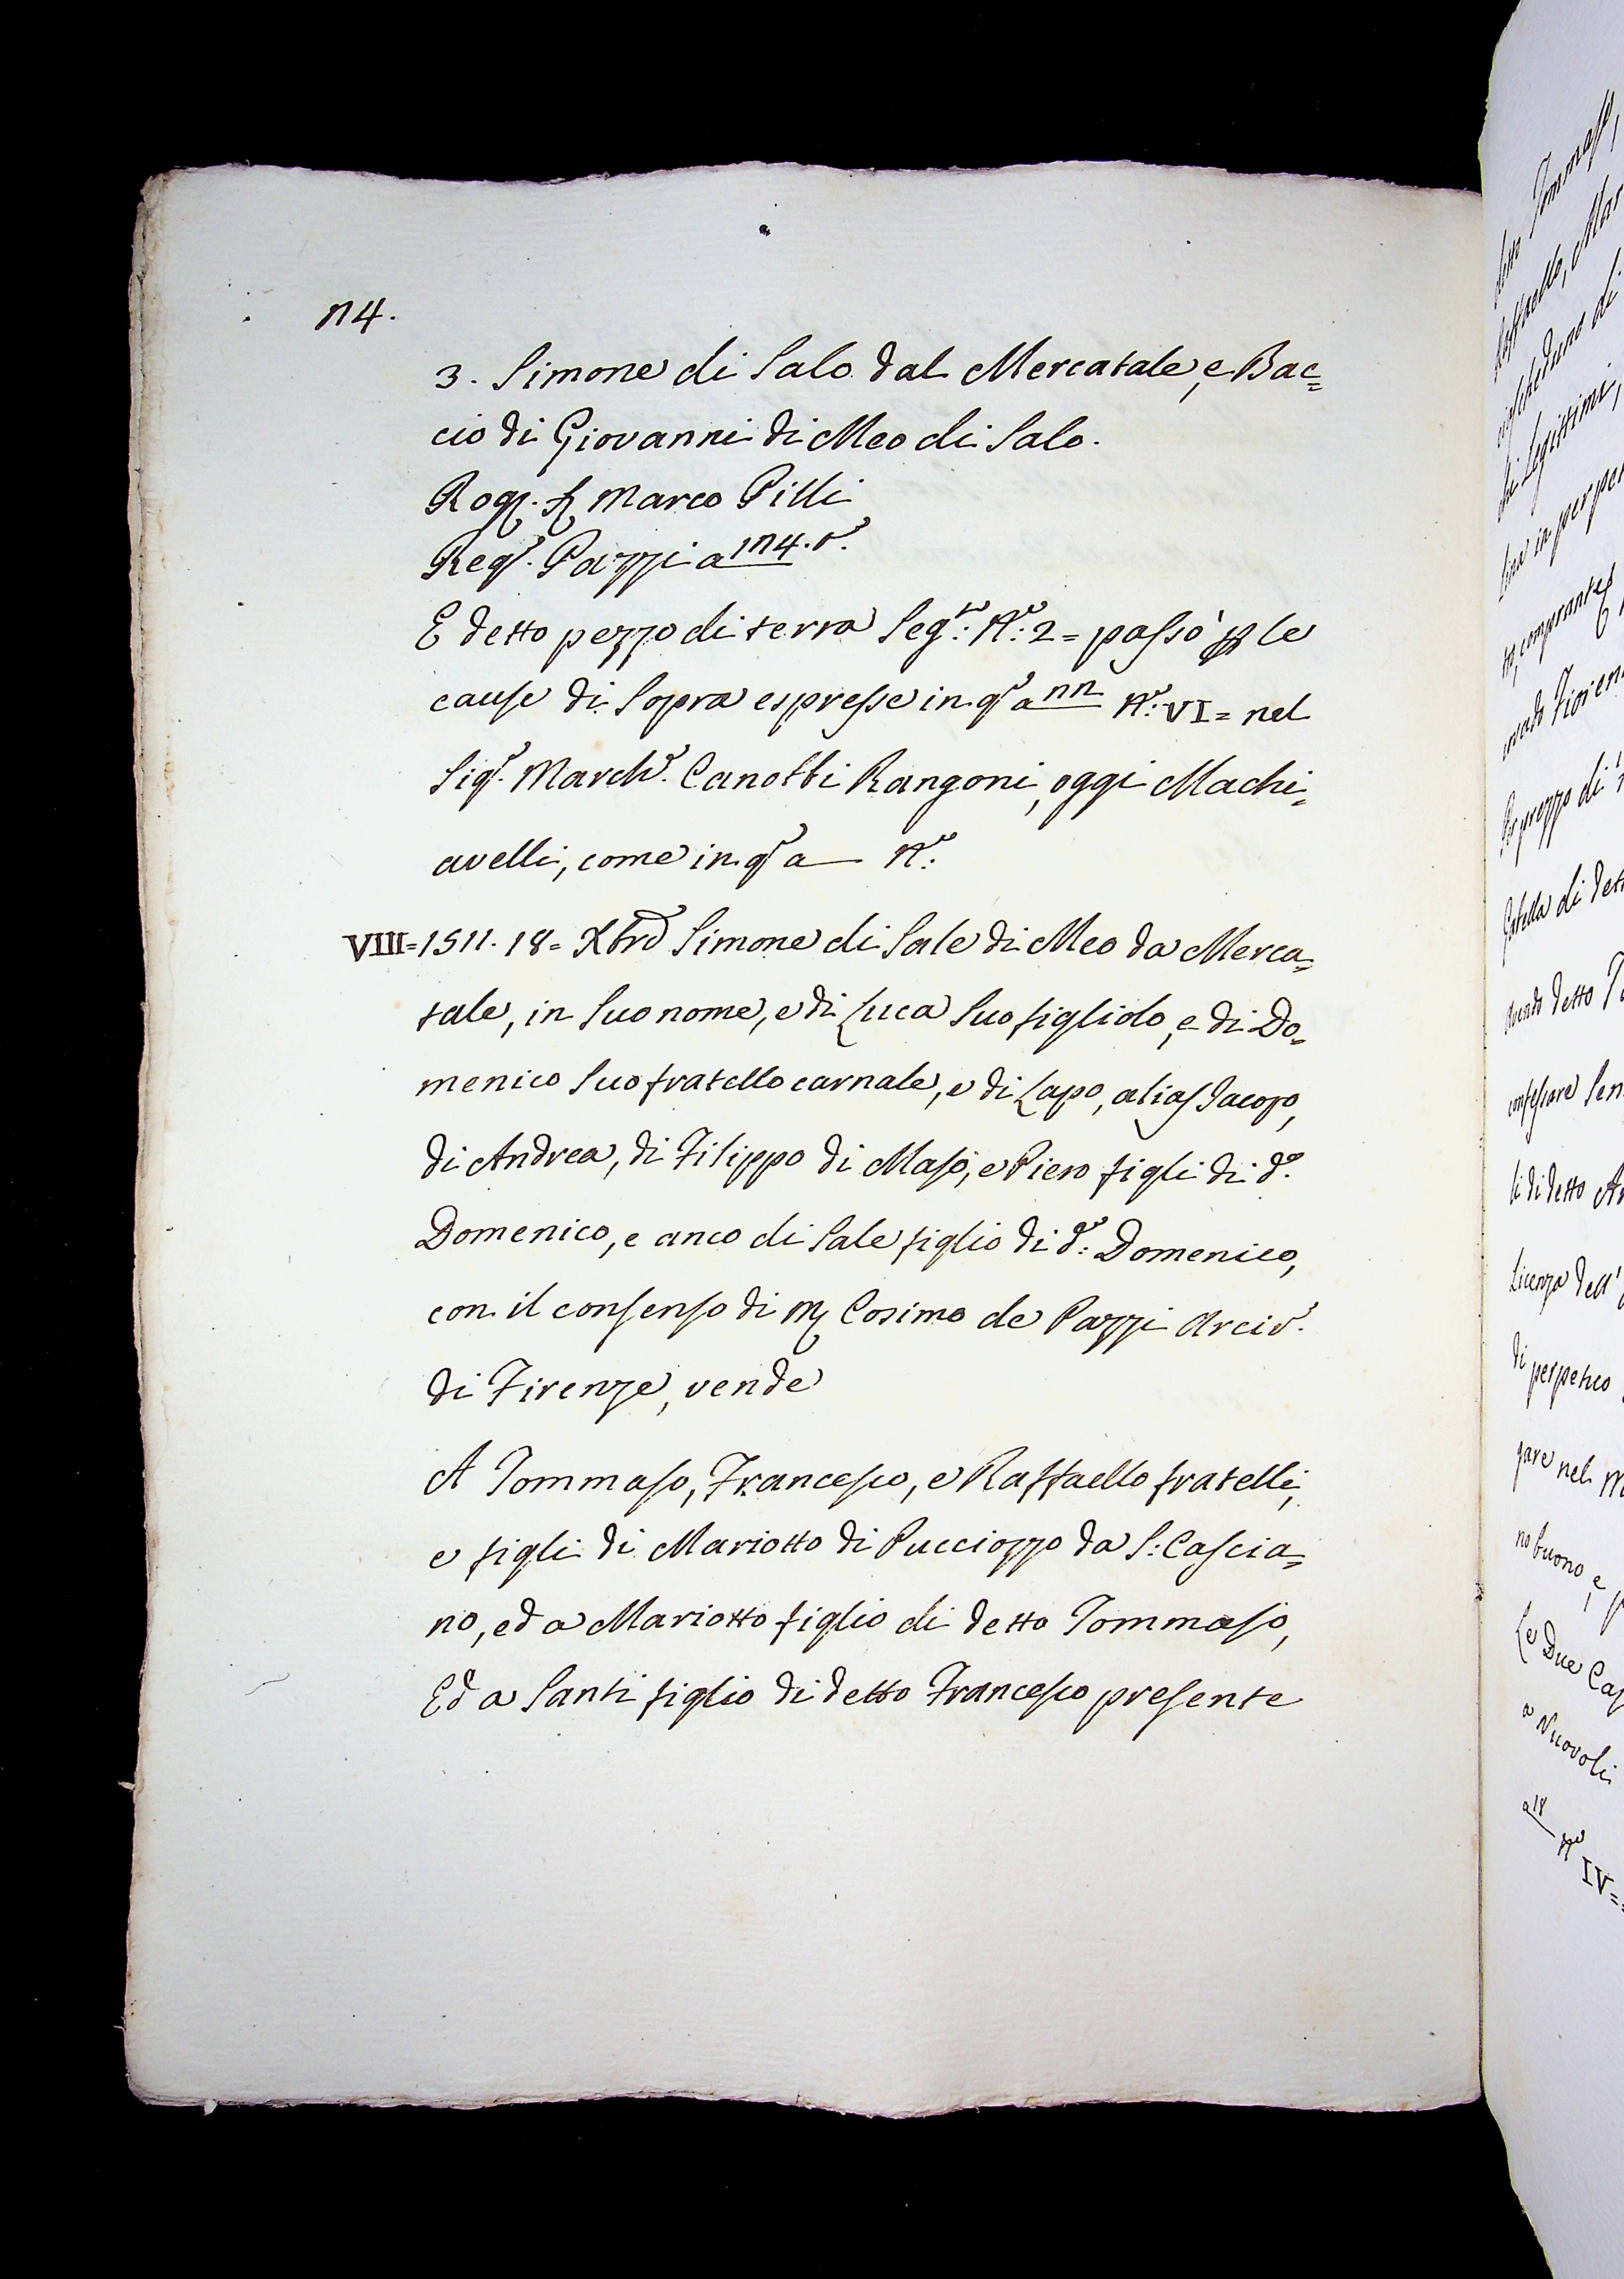 74.
3. Simone di Salo dal Mercatale, e Bac=
cio di Giovanni di Meo di Salo.
Rog. Marco Pilli
Reg.º Pazzi a 174. v.
E detto pezzo di terra Seg.to N.o: 2 = passò p le
cause di Sopra espresse in q.o a 77 N.o: VI = nel
Sig.r March.e Canobbi Rangoni, oggi Machi=
avelli, come in q.o a — N.o:
VIII = 1511. 18 = Xbre Simone di Sale di Meo da Merca=
tale, in Suo nome, e di Luca Suo figliolo, e di Do=
menico Suo fratello carnale, e di Lapo, alias Jacopo,
di Andrea, di Filippo di Maso, e Piero figli di d.o
Domenico, e anco di Sale figlio di d.o: Domenico,
con il consenso di M Cosimo de Pazzi Arciv.o
di Firenze, vende
A Tommaso, Francesco, e Raffaello fratelli,
e figli di Mariotto di Pucciozzo da S: Cascia=
no, ed a Mariotto figlio di detto Tommaso,
Ed a Santi figlio di detto Francesco presente
detto Tommaso,
Raffaello, Mar
ciascheduno di
di Legittimi,
Linea in perpe
to, comprante
Per prezzo di
Gabella di det
Avendo detto T
confessare Sen
li di detto An
Licenza dell'
di perpetuo
gare nel m
no buono, e p
Le Due Cas
a Nuovoli
a 18 N.o IV =